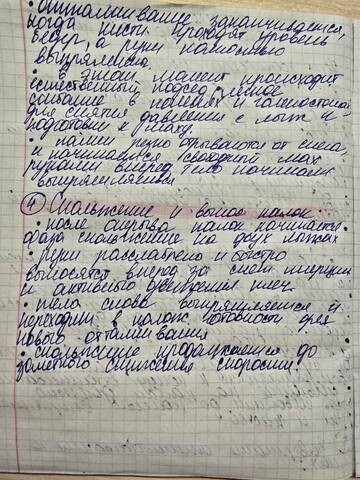 • отталкивание заканчивается,
когда кисти проходят уровень
бедер, а руки полностью
выпрямлена
• в этот момент происходит
естественный подсед (легкое
сгибание в коленях и голеностопах)
для снятия давления с лыж и
подготовки к маху.
• палки резко отрываются от снега
и начинается свободный мах
руками вперед тело начинает
выпрямляться
4 Скольжение и вынос палок
• после отрыва палок начинается
фаза скольжение на двух лыжах
• руки расслаблено и быстро
выносятся вперед за счет инерции
и активного движения плеч
• тело снова выпрямляется и
переходит в полож. готовности для
нового отталкивания
• скольжение продолжается до
заметного снижения скорости